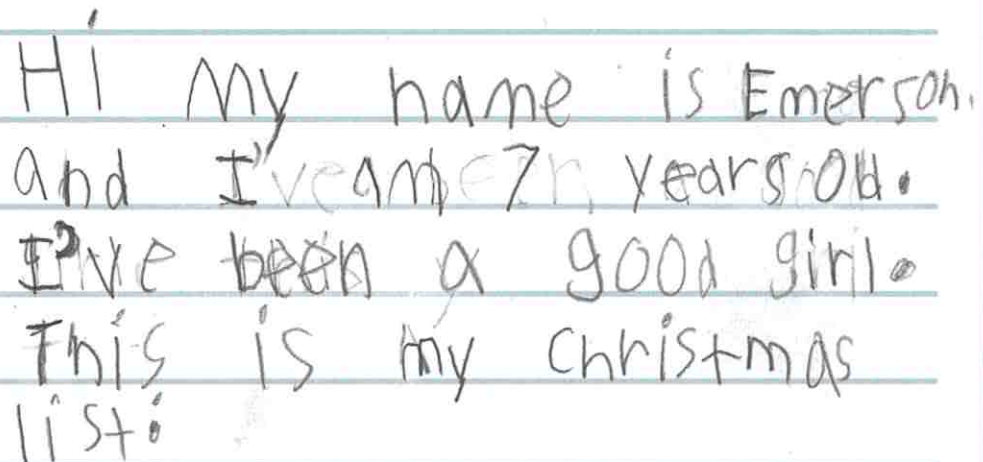 Hi My name is Emerson.
and I am 7 years old.
I've been a good girl.
This is my christmas
list: